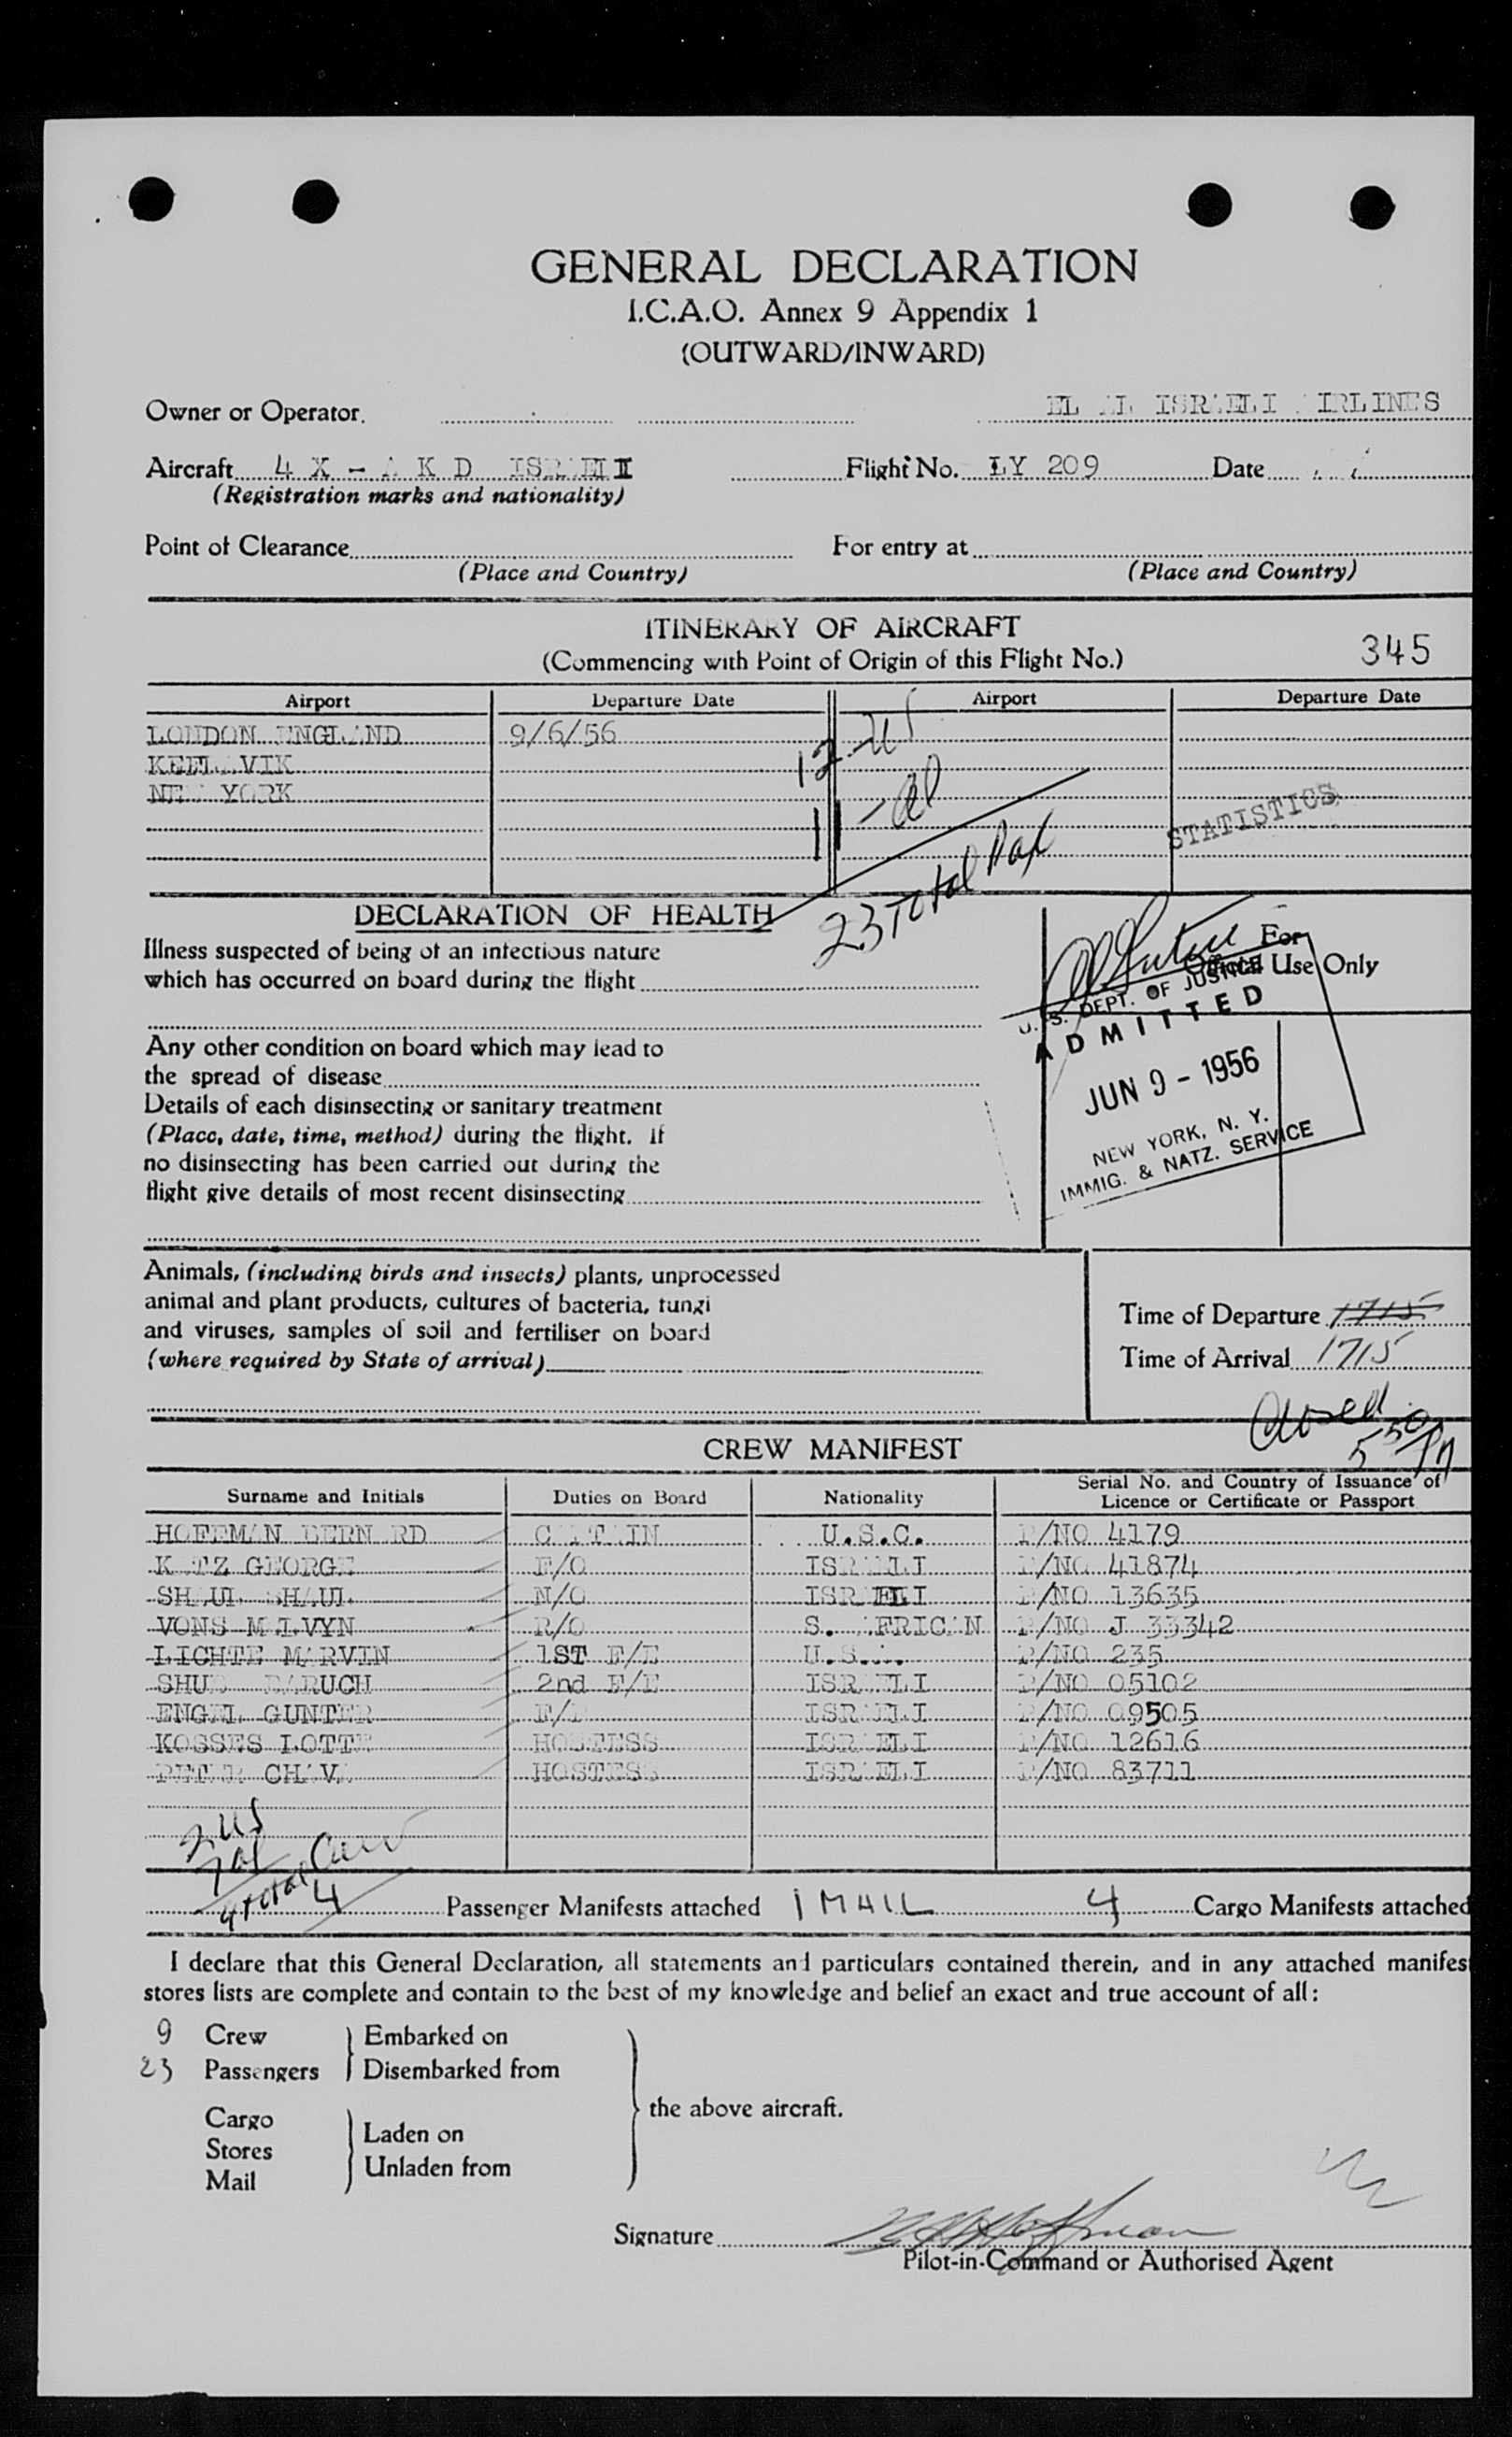 GENERAL DECLARATION
I.C.A.O. Annex 9 Appendix 1
(OUTWARD/INWARD)
Owner or Operator. EL AL ISRAELI AIRLINES
Aircraft 4 X - A K D ISRAELI Flight No. LY 209 Date
(Registration marks and nationality)
Point of Clearance For entry at
(Place and Country) (Place and Country)
ITINERARY OF AIRCRAFT
(Commencing with Point of Origin of this Flight No.) 345
Airport Departure Date Airport Departure Date
LONDON ENGLAND 9/6/56
KEFLAVIK
NEW YORK
12-US
11-al
23 Total Pax
STATISTICS
DECLARATION OF HEALTH
Illness suspected of being of an infectious nature
which has occurred on board during the flight
Any other condition on board which may lead to
the spread of disease
Details of each disinsecting or sanitary treatment
(Place, date, time, method) during the flight. If
no disinsecting has been carried out during the
flight give details of most recent disinsecting
For
Official Use Only
U. S. DEPT. OF JUSTICE
ADMITTED
JUN 9 - 1956
NEW YORK, N. Y.
IMMIG. & NATZ. SERVICE
Animals, (including birds and insects) plants, unprocessed
animal and plant products, cultures of bacteria, fungi
and viruses, samples of soil and fertiliser on board
(where required by State of arrival)
Time of Departure 1715
Time of Arrival 1715
Closed
5 50 PM
CREW MANIFEST
Surname and Initials Duties on Board Nationality Serial No. and Country of Issuance of Licence or Certificate or Passport
HOFFMAN BERNARD CAPTAIN U.S.C. P/NO 4179
KATZ GEORGE F/O ISRAELI P/NO 41874
SHAUL SHAUL N/O ISRAELI P/NO 13635
VONS MELVYN R/O S. AFRICAN P/NO J 33342
LICHTE MARVIN 1ST F/E U.S.A. P/NO 235
SHUB BARUCH 2nd F/E ISRAELI P/NO 05102
ENGEL GUNTER F/E ISRAELI P/NO 09505
KOSSES LOTTE HOSTESS ISRAELI P/NO 12616
PETER CHAVA HOSTESS ISRAELI P/NO 83711
2 US
7 al
9 total Crew
4 Passenger Manifests attached 1 MAIL 4 Cargo Manifests attached
I declare that this General Declaration, all statements and particulars contained therein, and in any attached manifes
stores lists are complete and contain to the best of my knowledge and belief an exact and true account of all:
9 Crew Embarked on
23 Passengers Disembarked from
the above aircraft.
Cargo
Stores
Mail
Laden on
Unladen from
Signature Hoffman
Pilot-in-Command or Authorised Agent